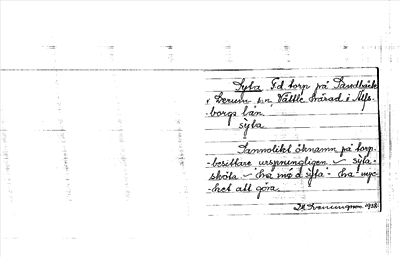 Syta F.d. torp på Sandbäck
i Lerum s:n, Vättle härad i Älfs-
borgs län.
syta.
Sannolikt öknamn på torp-
besittare ursprungligen. syta -
sköta. ha med syta - ha myc-
ket att göra.
1928